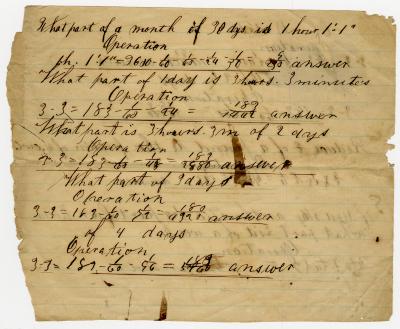 What part of a month of 30 dys is 1 hour 1' 1"
Operation
answer
What part of 1 day is 3 hours. 3 minutes
Operation
3-3 = 183 1/60 1/24 = 183/1440 answer
What part is 3 hours. 3 m of 2 days
Operation
3-3 = 183 1/60 - 1/48 = 183/2880 answer
What part of 3 days
Operation
3-3 = answer
of 4 days
Operation,
3-3 = 183 - 1/60 - 1/96 = answer